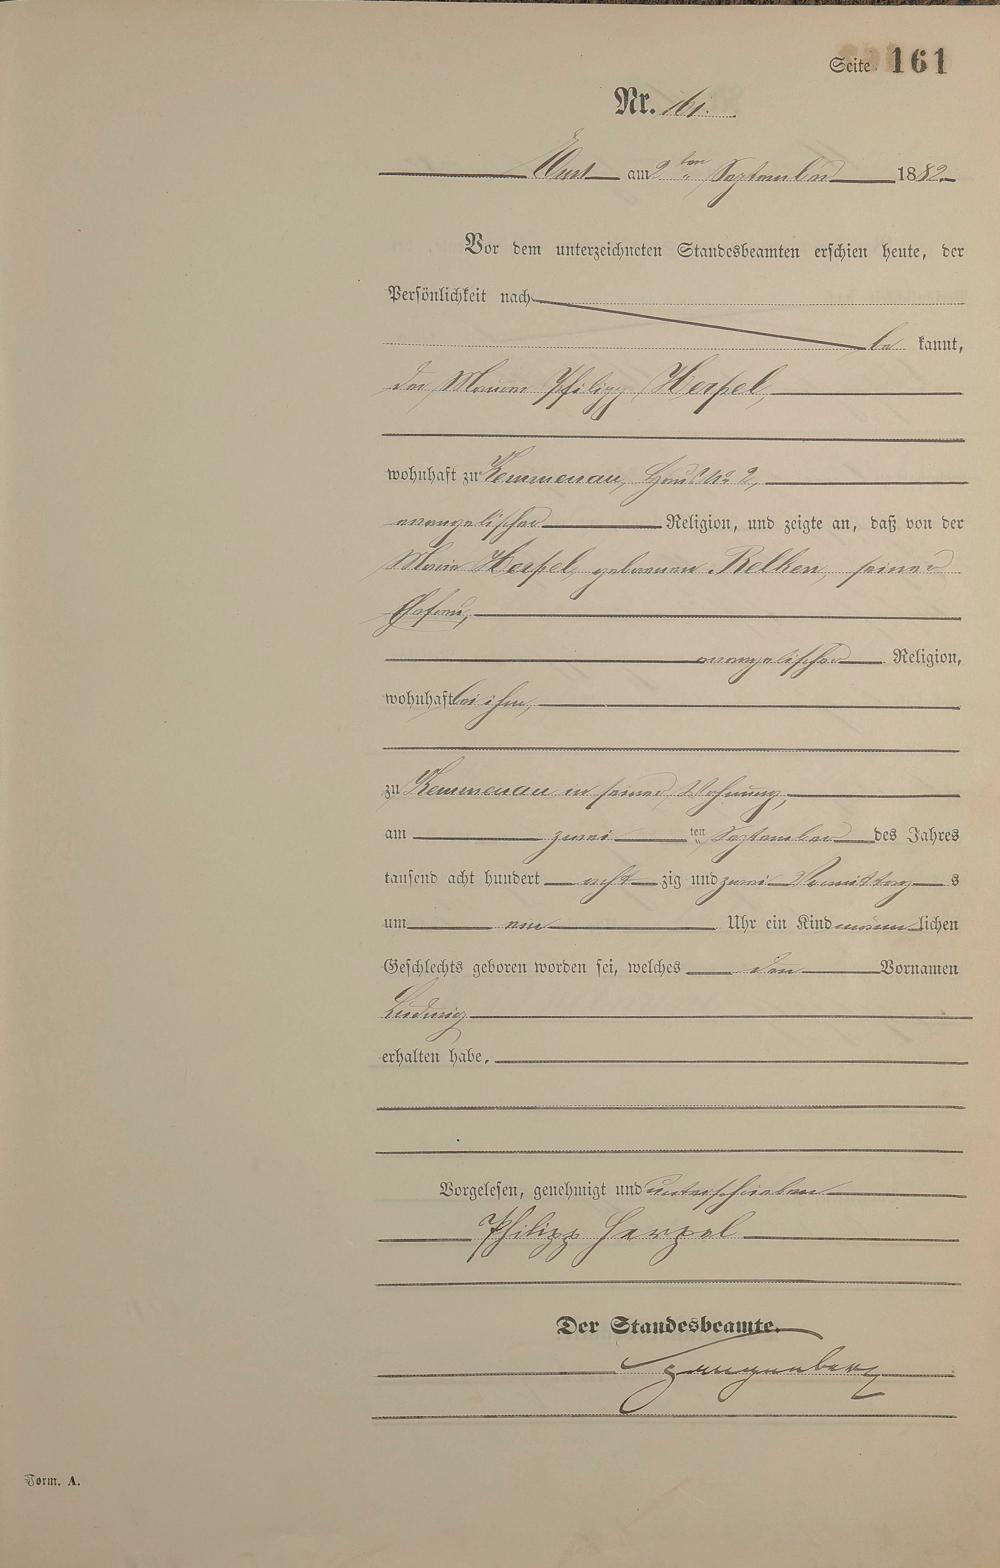 Seite 161
Nr. 161.
am 2ten September 1882.
Vor dem unterzeichneten Standesbeamten erschien heute, der
Persönlichkeit nach
be kannt,
der Maurer Philipp Herpel,
wohnhaft zu Kemmenau, Haus No 2,
evangelischer Religion, und zeigte an, daß von der
Marie Herpel, geborenen, seiner
Ehefrau,
evangelischer Religion,
wohnhaft bei ihm,
zu Kemmenau in seiner Wohnung,
am zwei ten September des Jahres
tausend acht hundert acht zig und zwei Vormittag s
um ein Uhr ein Kind männ lichen
Geschlechts geboren worden sei, welches den Vornamen
Ludwig
erhalten habe.
Vorgelesen, genehmigt und unterschrieben
Philipp Herpel
Der Standesbeamte.
Form. A.